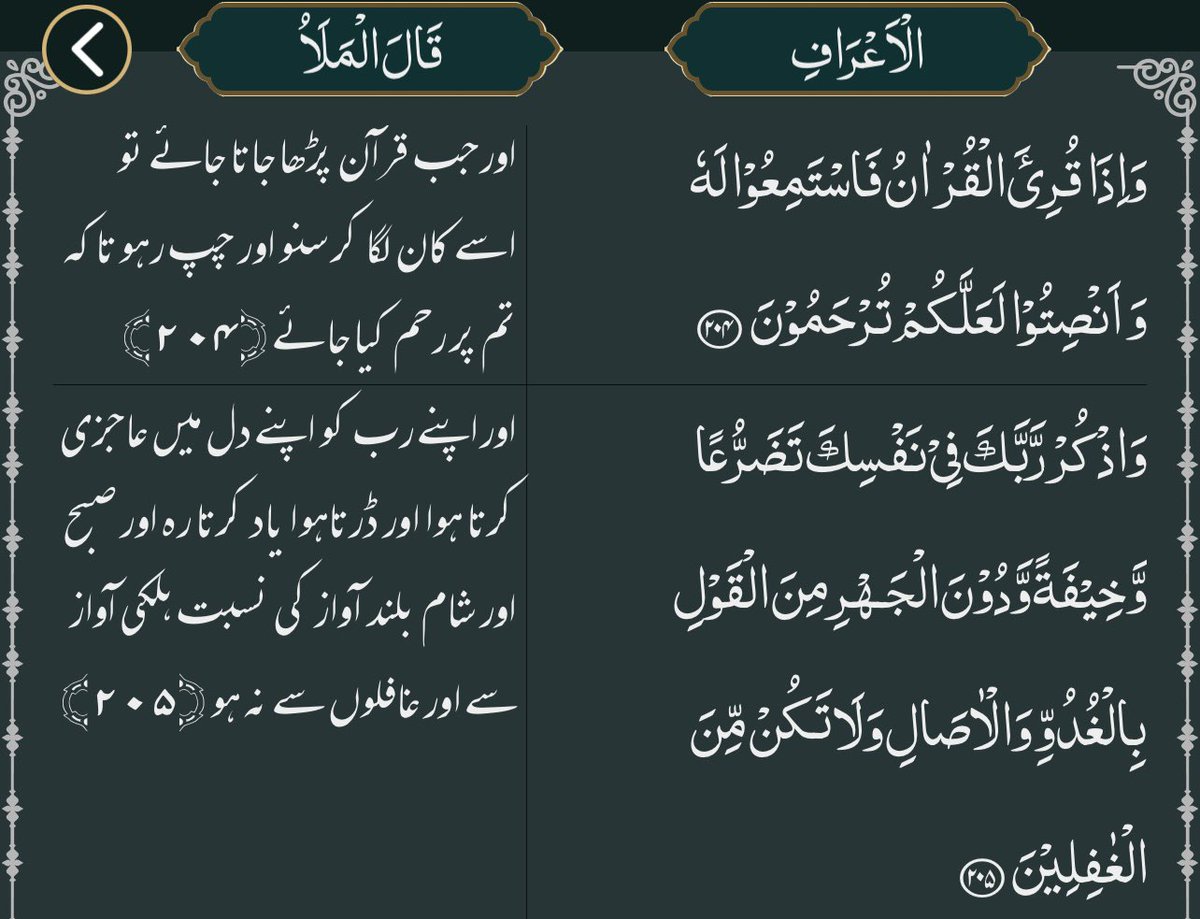 الْاَعْرَافِ
قَالَ الْمَلَاُ
وَ اِذَا قُرِئَ الْقُرْاٰنُ فَاسْتَمِعُوْا لَهٗ
وَ اَنْصِتُوْا لَعَلَّكُمْ تُرْحَمُوْنَ ۲۰۴
وَ اذْكُرْ رَّبَّكَ فِیْ نَفْسِكَ تَضَرُّعًا
وَّ خِیْفَةً وَّ دُوْنَ الْجَهْرِ مِنَ الْقَوْلِ
بِالْغُدُوِّ وَ الْاٰصَالِ وَ لَا تَكُنْ مِّنَ
الْغٰفِلِیْنَ ۲۰۵
اور جب قرآن پڑھا جاتا جائے تو
اسے کان لگا کر سنو اور چپ رہو تا کہ
تم پر رحم کیا جائے ﴿۲۰۴﴾
اور اپنے رب کو اپنے دل میں عاجزی
کرتا ہوا اور ڈرتا ہوا یاد کرتا رہ اور صبح
اور شام بلند آواز کی نسبت ہلکی آواز
سے اور غافلوں سے نہ ہو ﴿۲۰۵﴾